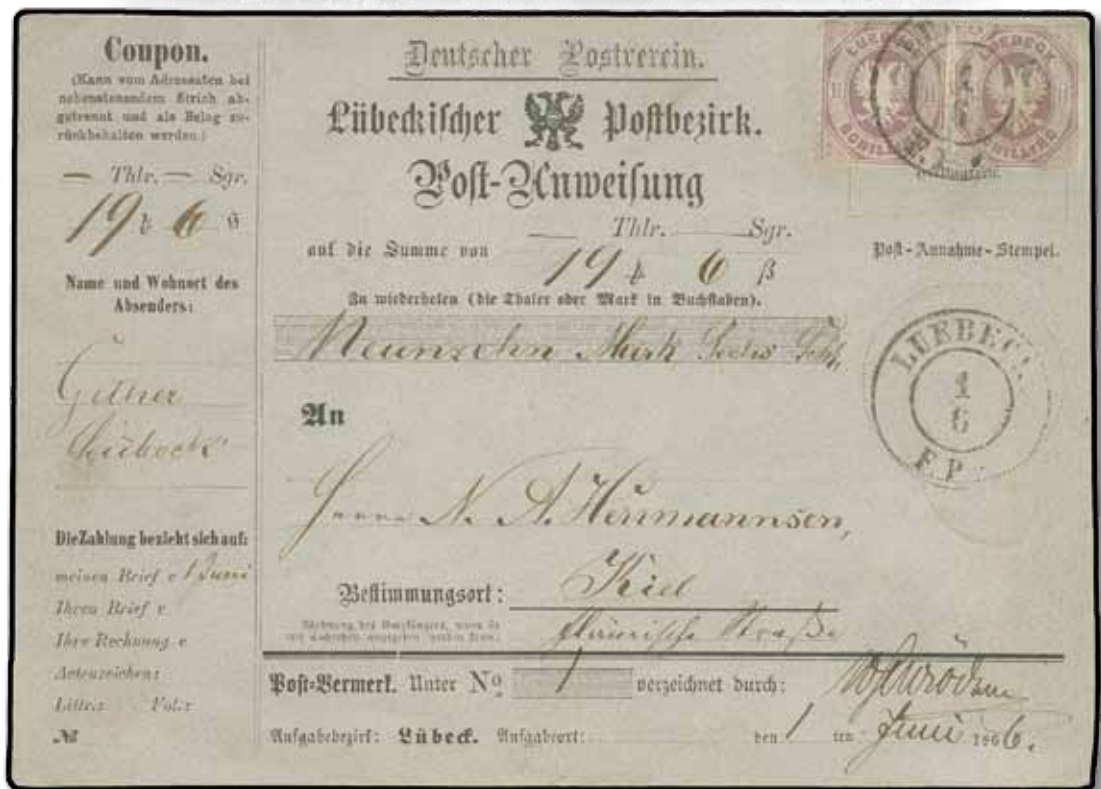 Coupon.
(Kann vom Adressaten bei
nebenstehendem Strich ab-
getrennt und als Belag zu-
rückbehalten werden.)
— Thlr. — Sgr.
19 ₰ 6 ß
Name und Wohnort des
Absenders:
Lübeck
Die Zahlung bezieht sich auf:
meinen Brief v 1 Juni
Ihren Brief v
Ihre Rechnung v
Actenzeichen:
Littr.: Fol.:
№
Deutscher Postverein.
Lübeckischer Postbezirk.
Post-Anweisung
auf die Summe von — Thlr. — Sgr.
19 ₰ 6 ß
Zu wiederholen (die Thaler oder Mark in Buchstaben).
Neunzehn Mark Sechs
An
Herrn N. A. Hermannsen,
Bestimmungsort: Kiel
Straße
Post-Vermerk. Unter No 1 verzeichnet durch:
Aufgabebezirk: Lübeck. Aufgabeort: den 1 ten Juni 1866.
LUEBECK
SCHILLING
LUEBECK
SCHILLING
Post-Annahme-Stempel.
LUEBECK
1
6
F. P.